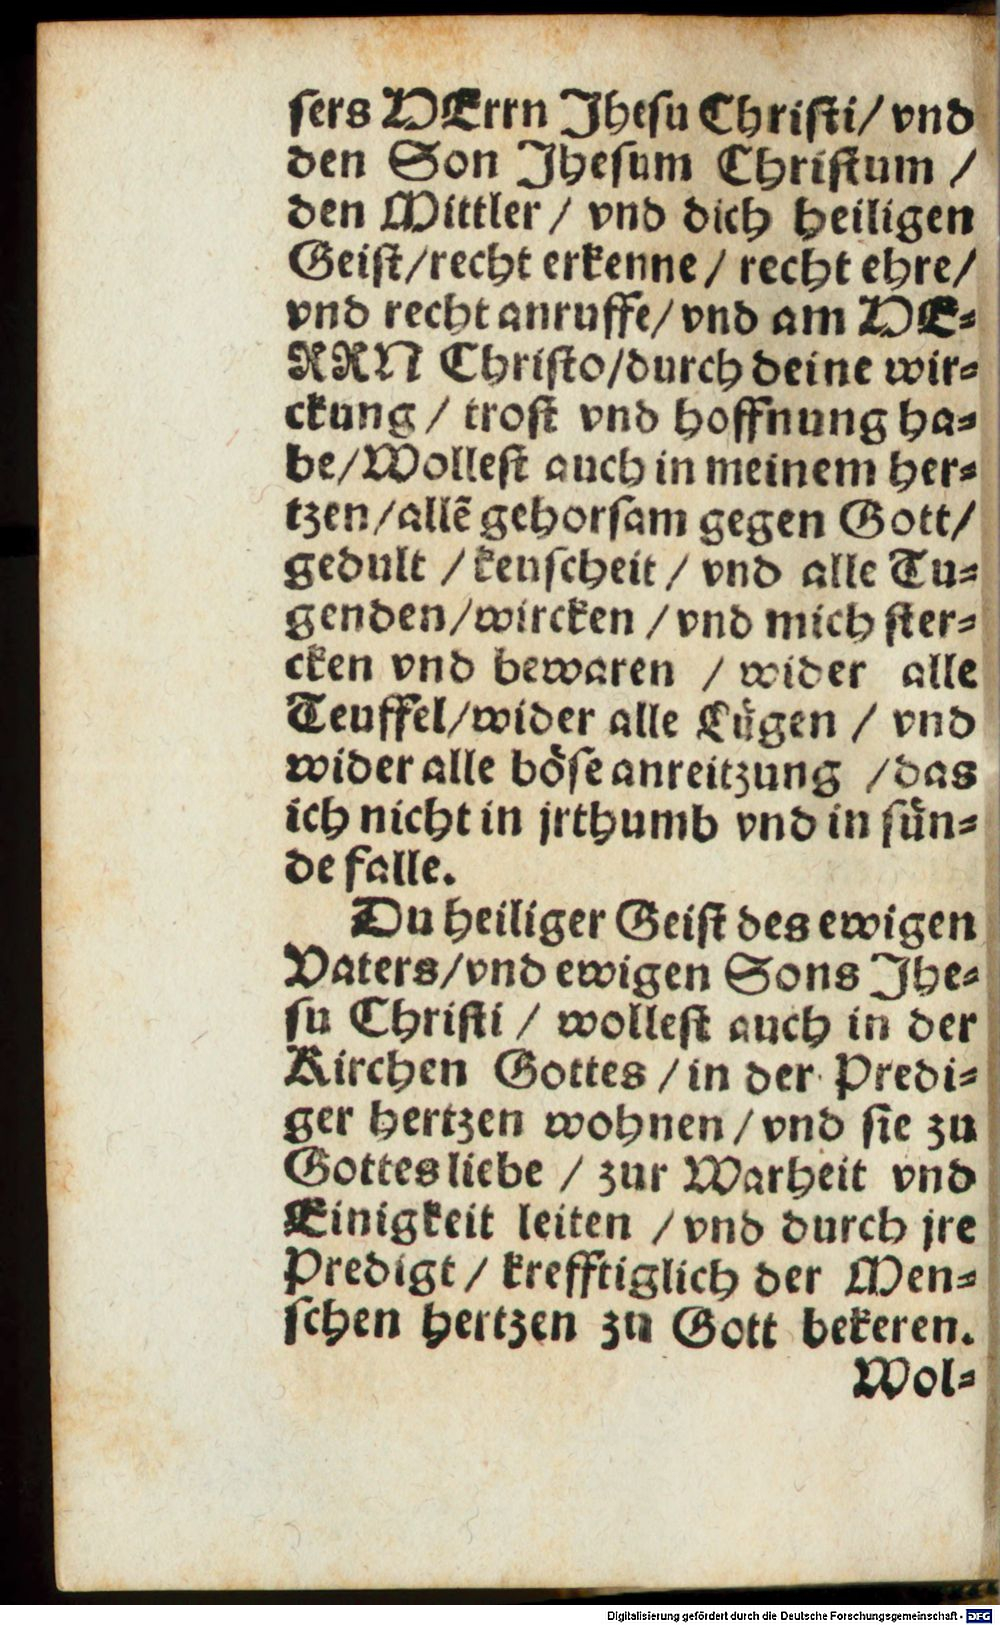 sers HErrn Jhesu Christi/ vnd
den Son Jhesum Christum /
den Mittler / vnd dich heiligen
Geist/recht erkenne / recht ehre/
vnd recht anruffe/ vnd am HE-
RRN Christo/durch deine wir-
ckung / trost vnd hoffnung ha-
be/Wollest auch in meinem her-
tzen/allẽ gehorsam gegen Gott/
gedult / keuscheit / vnd alle Tu-
genden/wircken / vnd mich ster-
cken vnd bewaren / wider alle
Teuffel/wider alle Lügen / vnd
wider alle böse anreitzung /das
ich nicht in jrthumb vnd in sün-
de falle.
Du heiliger Geist des ewigen
Vaters/vnd ewigen Sons Jhe-
su Christi / wollest auch in der
Kirchen Gottes / in der Predi-
ger hertzen wohnen / vnd sie zu
Gottes liebe / zur Warheit vnd
Einigkeit leiten / vnd durch jre
Predigt / krefftiglich der Men-
schen hertzen zu Gott bekeren.
Wol-
Digitalisierung gefördert durch die Deutsche Forschungsgemeinschaft - DFG